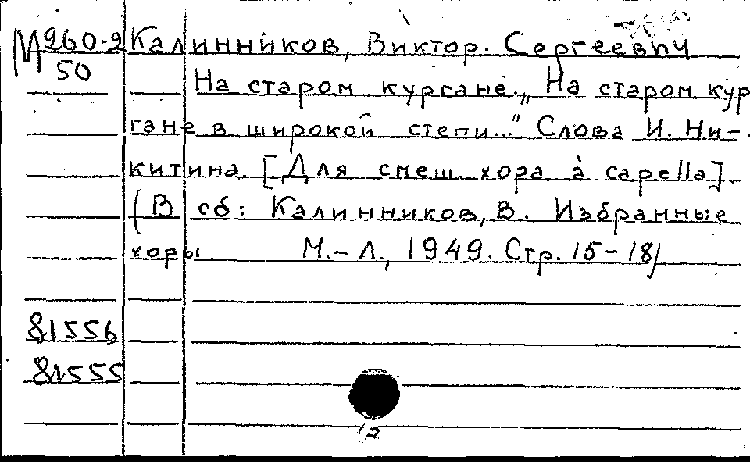 М 960-2 Калинников, Виктор. Сергеевич
50 На старом кургане. „На старом кур
гане в широкой степи..." Слова И. Ни-
китина. [Для смеш хора à capella].
(В сб: Калинников, В. Избранные
хоры М.-Л., 1949. Стр. 15-18)
81556
81555